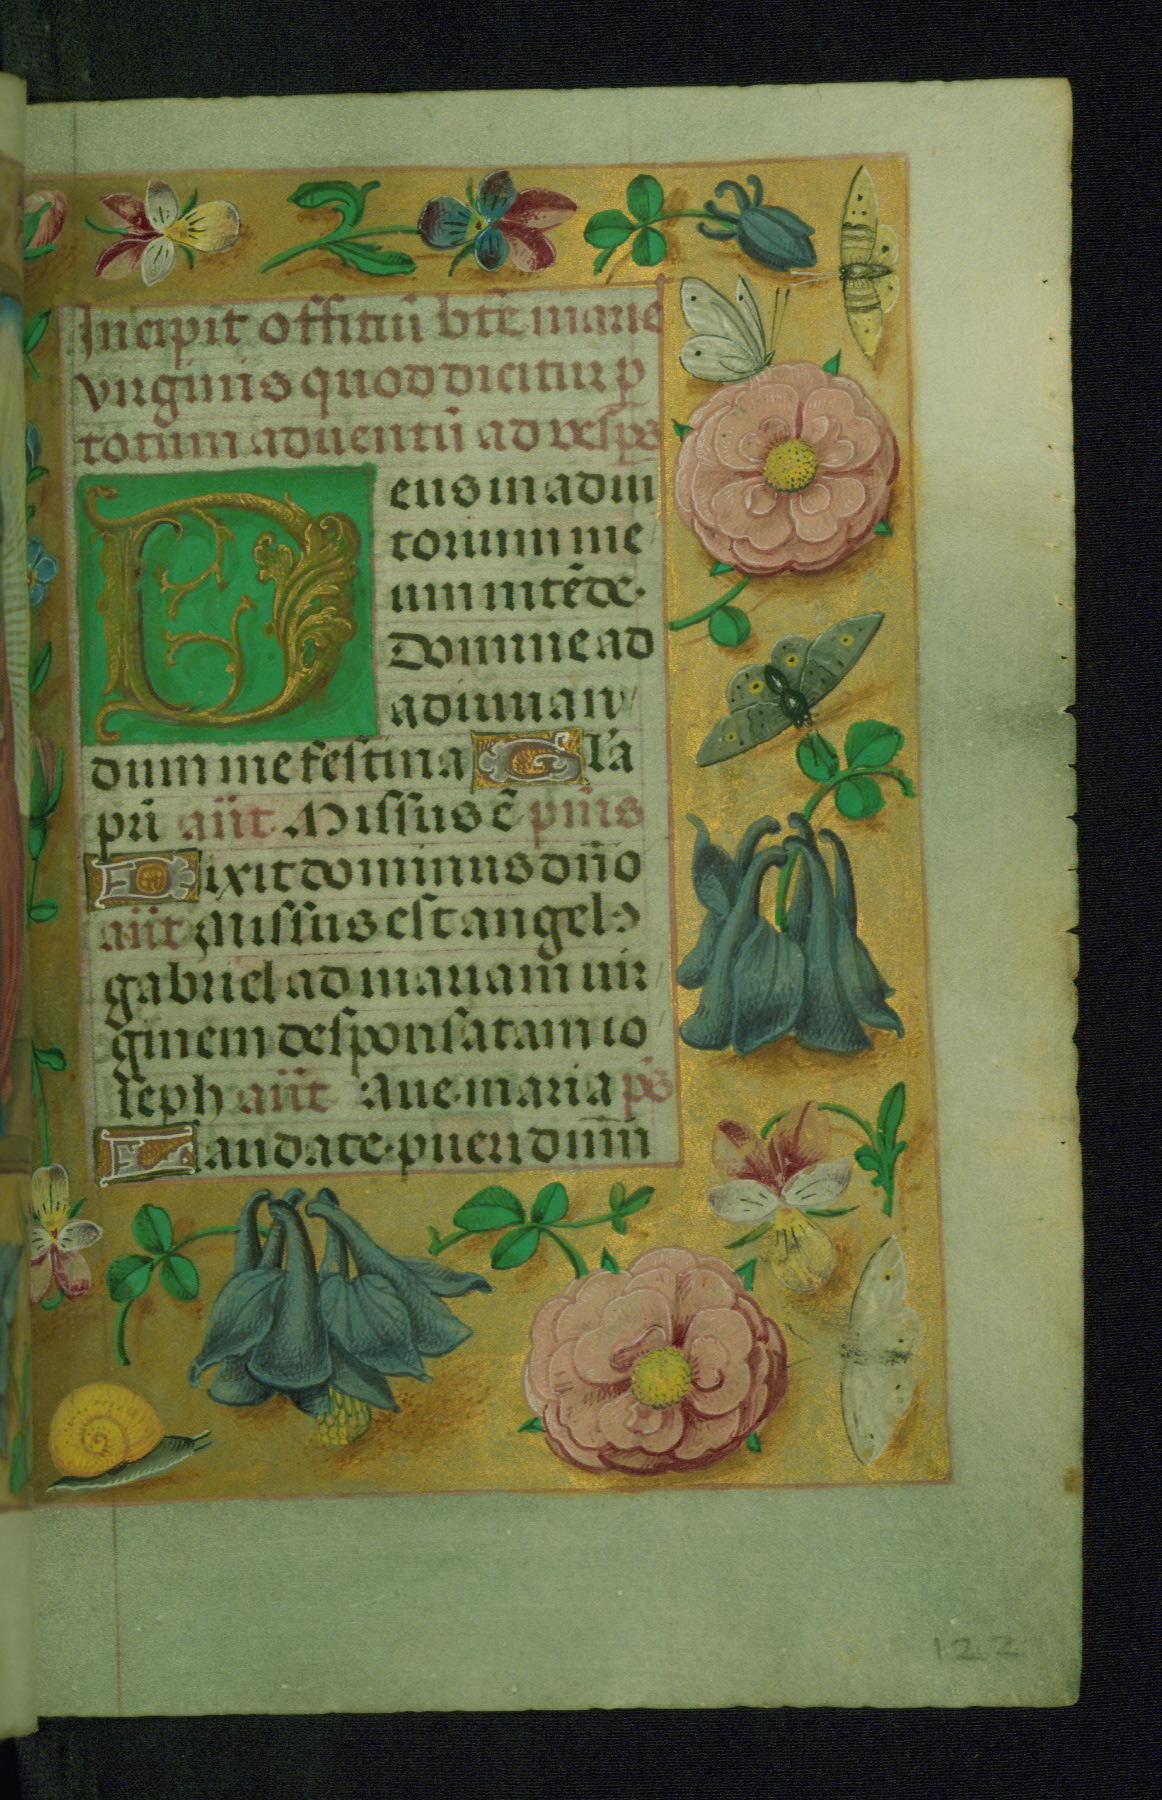 Incipit offitiū bte̅ marie
virginis quod dicitur p
totum aduentū ad vesp̅s
Deus in adiu
torium me
um intēde.
Domine ad
adiuuan/
dum me festina Gl'a
pri̅ an̅t Missus ē pn̅s
Dixit dominus dn̅o
an̅t Missus est angelꝰ
gabriel ad mariam uir/
ginem desponsatam io
seph an̅t Aue maria ps̅
Laudate pueri dnm̅
122